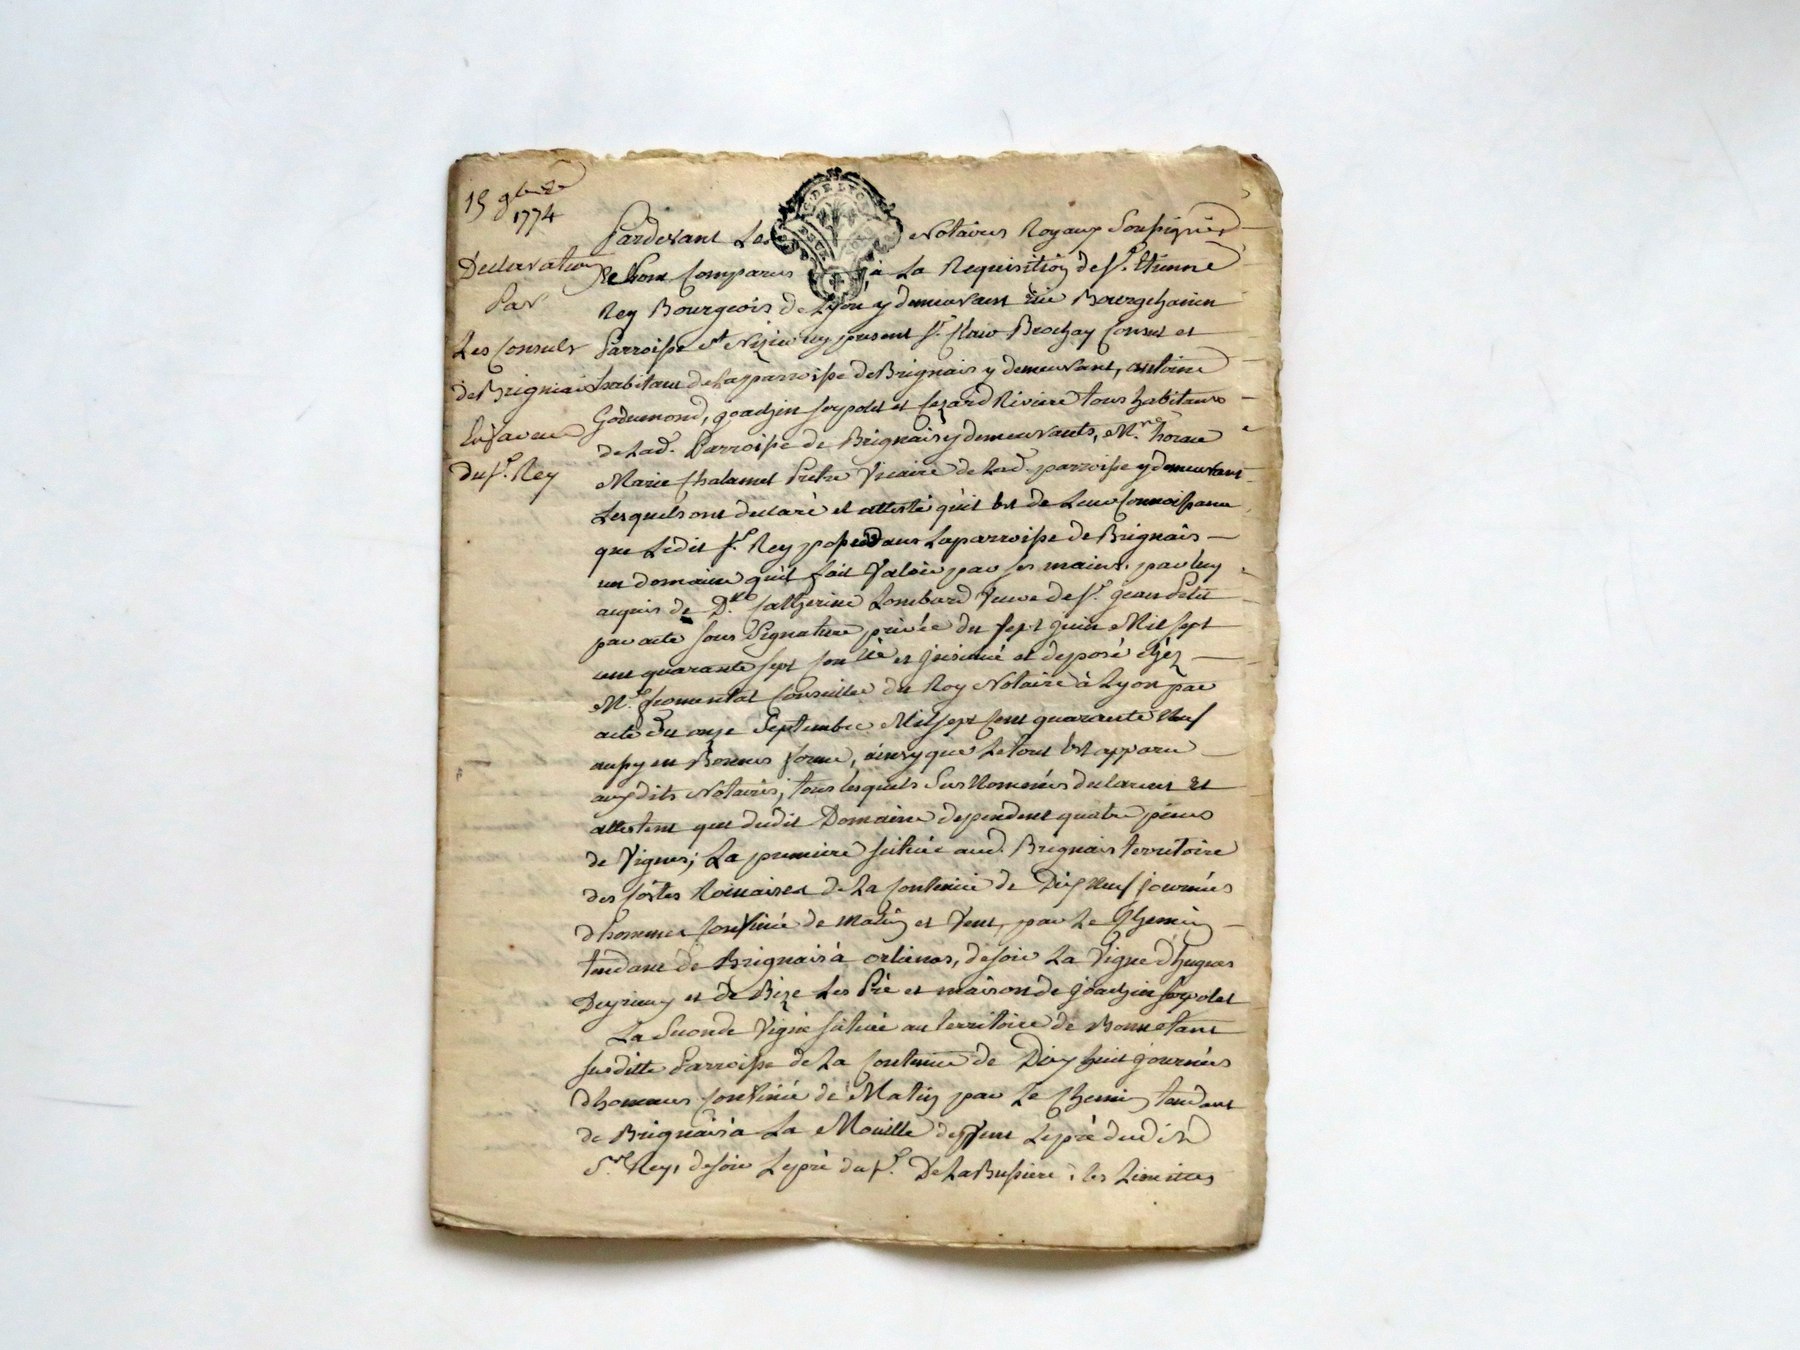 15 9bre
1774
Declaration
Par
Les Consuls
de Brigniais
En faveur
du Sr. Rey
G. DE LYON
Pardevant Les Notaires Royaux Soussignés
Se Sont Comparus à La Requisition de Sr. Etienne
Rey Bourgeois de Lyon y demeurant rüe Bourgchanin
Parroisse St Nizier présent Sr. Brochay Consul et
habitant de la parroisse de Brignais y demeurant, antoine
Godemond, joachin et Cezard Riviere tous habitans
de Lad. Parroisse de Brignais y demeurants, Mre.
Marie Chalamel Prêtre Vicaire de Lad. parroisse y demeurant
Lesquels ont declaré et attesté qu'il Est de Leur Connoissance
que Ledit Sr. Rey possede dans La parroisse de Brignais
un domaine qu'il fait Valoir par ses mains. par luy
acquis de Dlle Catherine Lombard Veuve de Sr. jean Petit
par acte sous Signature privée du sept juin Mil sept
cent quarante sept Conllé et jnsinué et déposé chéz
Me. fromental Conseiller du Roy Notaire à Lyon par
acte du onze Septembre Mil sept Cent quarante Neuf
aussy en Bonnes forme, ainsy que Le tout Est apparu
auxdits Notaires; tous lesquels Sus Nommés declarent Et
attestent que dudit Domaine dependent quatre pieces
de Vignes; La premiere scituée aud. Brignais territoire
des Côstes de La Contenue de Dix Neuf journées
d'hommes Confinée de matin et Vent, par Le Chemin
tendant de Brignais à orlienas, de soir La Vigne d'hugues
et de Bize Les Pré et maison de joachin
La Seconde Vigne scituée au territoire de Bonnetant
susditte Parroisse de La Contenue de Dix huit journées
d'hommes Confinée de Matin par Le Chemin tendant
de Brignais à La Mouille de Vent Le pré dudit
Sr. Rey, de soir Le pré du Sr. De La Bussiere les Limittes